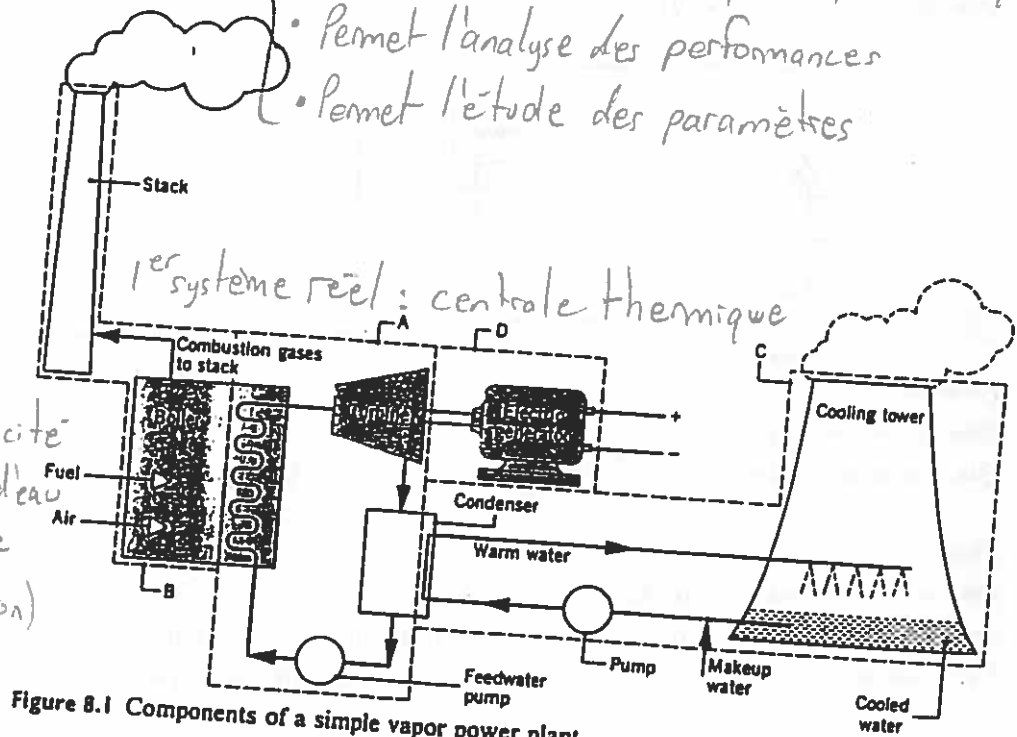 • Permet l'analyse des performances
• Permet l'étude des paramètres
Stack
1er système réel : centrale thermique
A
D
C
Combustion gases
to stack
Boiler
Turbine
Electric
generator
+
-
Cooling tower
Fuel
Air
B
Condenser
Warm water
Pump
Makeup
water
Feedwater
pump
Cooled
water
cité
d'eau
Figure 8.1 Components of a simple vapor power plant